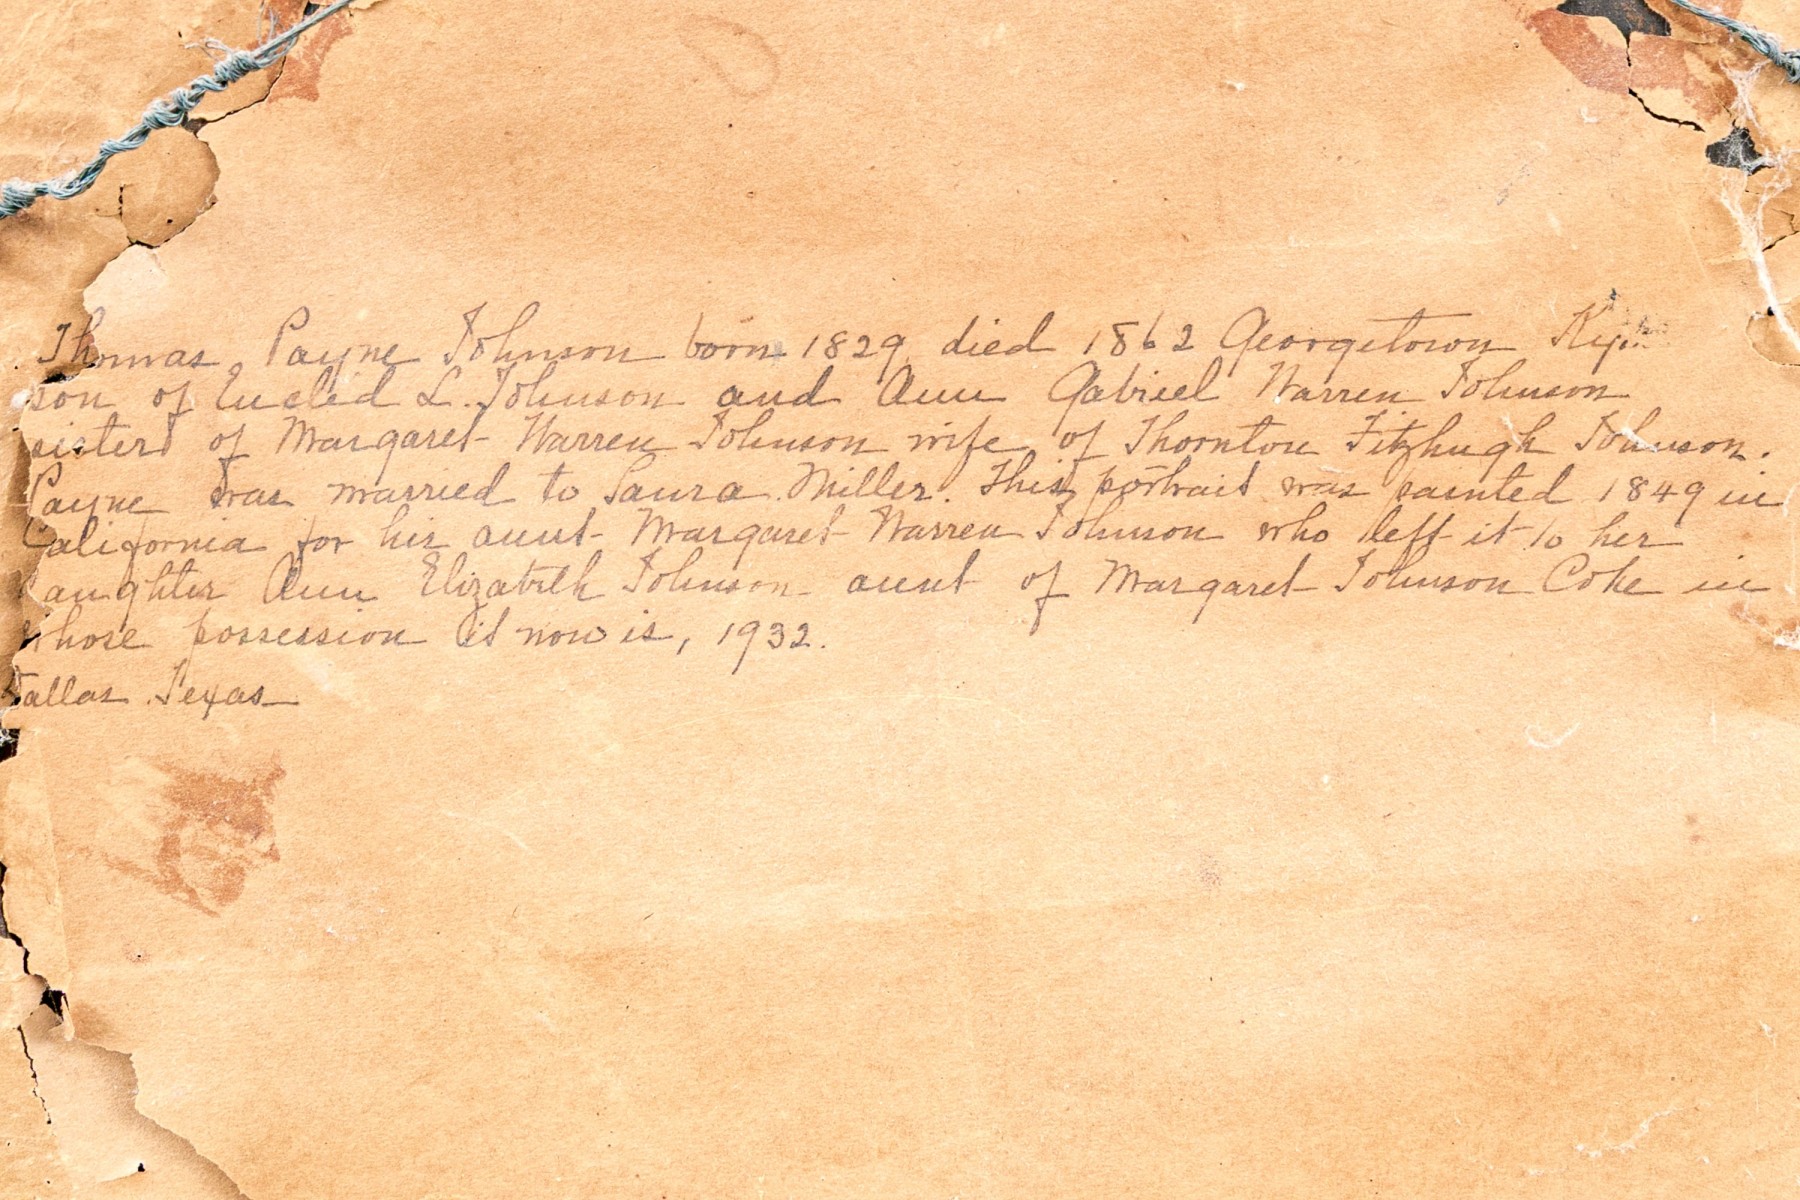 Thomas Payne Johnson born 1829 died 1862 Georgetown Ky.
son of Euclid L. Johnson and Ann Gabriel Warren Johnson
sister of Margaret Warren Johnson wife of Thornton Fitzhugh Johnson.
Payne was married to Laura Miller. This portrait was painted 1849 in
California for his aunt Margaret Warren Johnson who left it to her
daughter Ann Elizabeth Johnson aunt of Margaret Johnson Coke in
whose possession it now is, 1932.
Dallas Texas